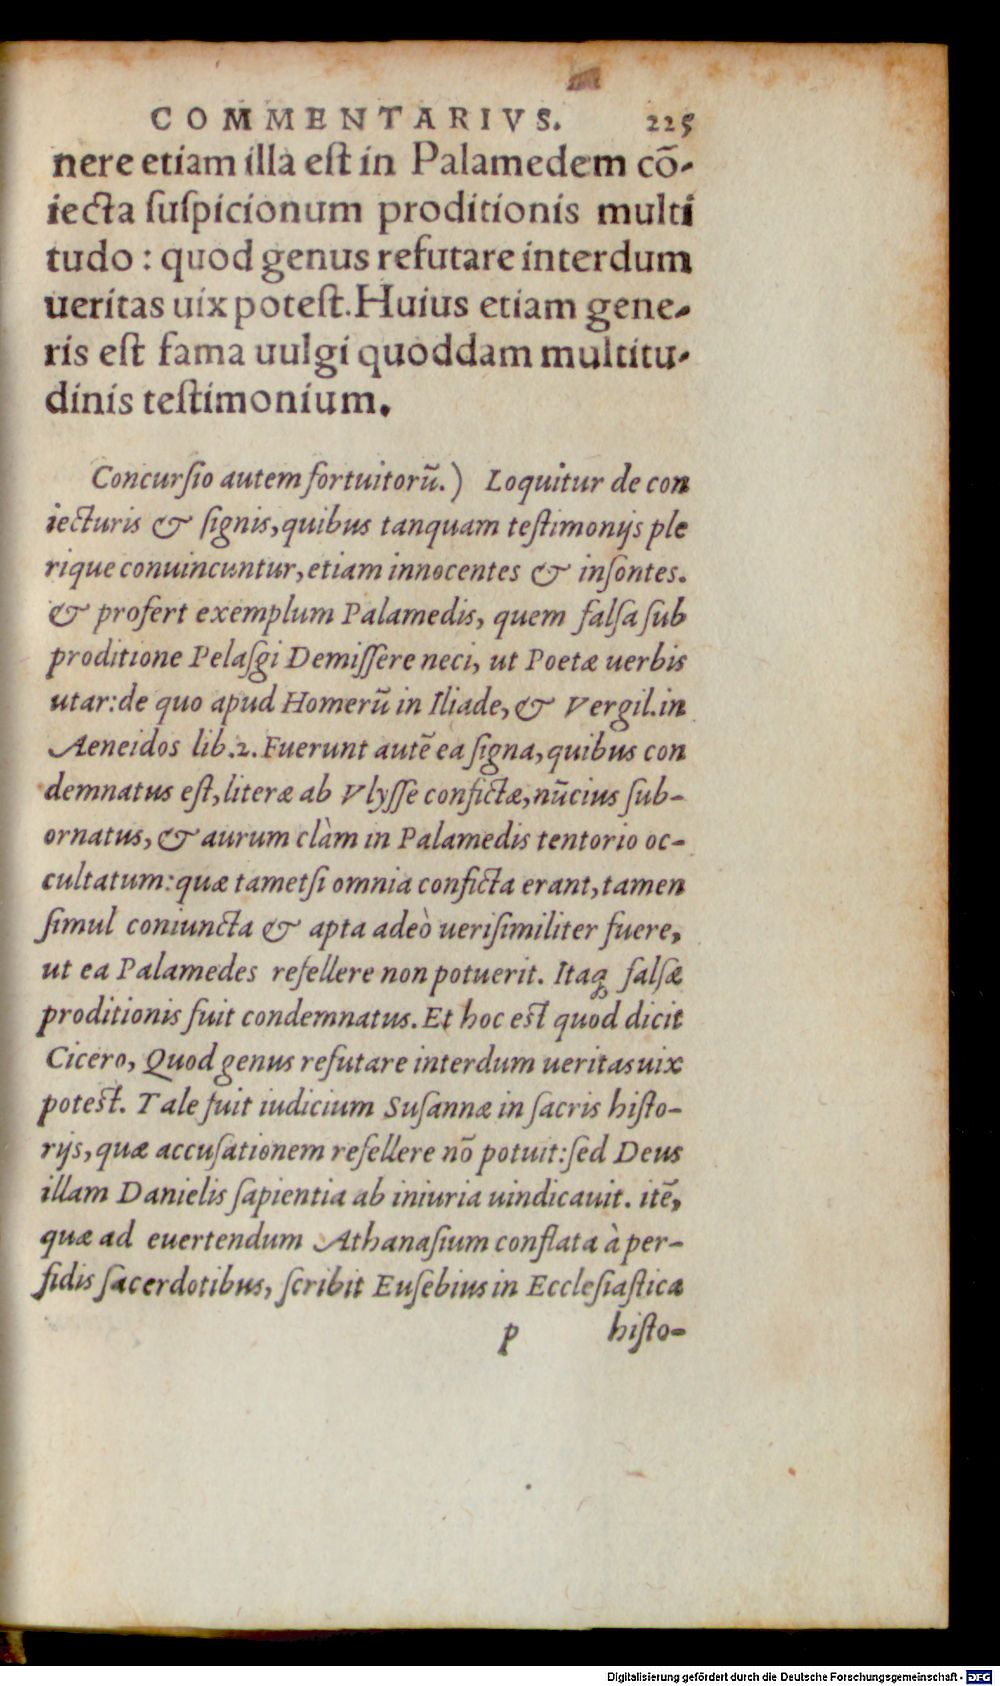 COMMENTARIVS. 225
nere etiam illa est in Palamedem cō-
iecta suspicionum proditionis multi
tudo : quod genus refutare interdum
ueritas uix potest. Huius etiam gene-
ris est fama uulgi quoddam multitu-
dinis testimonium.
Concursio autem fortuitorū.) Loquitur de con
iecturis & signis, quibus tanquam testimonijs ple
rique conuincuntur, etiam innocentes & insontes.
& profert exemplum Palamedis, quem falsa sub
proditione Pelasgi Demissere neci, ut Poetæ uerbis
utar: de quo apud Homerū in Iliade, & Vergil. in
Aeneidos lib. 2. Fuerunt autē ea signa, quibus con
demnatus est, literæ ab Vlysse confictæ, nūcius sub-
ornatus, & aurum clàm in Palamedis tentorio oc-
cultatum: quæ tametsi omnia conficta erant, tamen
simul coniuncta & apta adeò uerisimiliter fuere,
ut ea Palamedes refellere non potuerit. Itaq; falsæ
proditionis fuit condemnatus. Et hoc est quod dicit
Cicero, Quod genus refutare interdum ueritas uix
potest. Tale fuit iudicium Susannæ in sacris histo-
rijs, quæ accusationem refellere nō potuit: sed Deus
illam Danielis sapientia ab iniuria uindicauit. itē,
quæ ad euertendum Athanasium conflata à per-
fidis sacerdotibus, scribit Eusebius in Ecclesiastica
p histo-
Digitalisierung gefördert durch die Deutsche Forschungsgemeinschaft - DFG